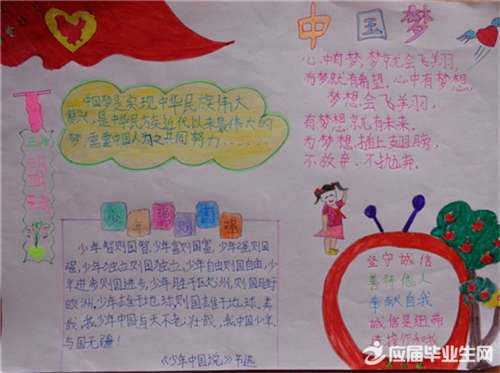 中国梦
心中有梦,梦就会飞羊羽,
有梦就有希望,心中有梦想,
梦想会飞羊羽,
有梦想就有未来,
为梦想插上翅膀,
不放弃,不抛弃.
中国梦是实现中华民族伟大
复兴,是中华民族近代以来最伟大的
梦 需要中国人为之共同努力.......
少年强则国强
少年智则国智,少年富则国富,少年强则国
强,少年独立则国独立,少年自由则国自由,少
年进步则国进步,少年胜于欧洲,则国胜于
欧洲,少年雄于地球则国雄于地球,美
哉,我少年中国与天不老,壮哉,我中国少年,
与国无疆!
《少年中国说》节选
坚守诚信
关怀他人
奉献自我
诚信是
应届毕业生网